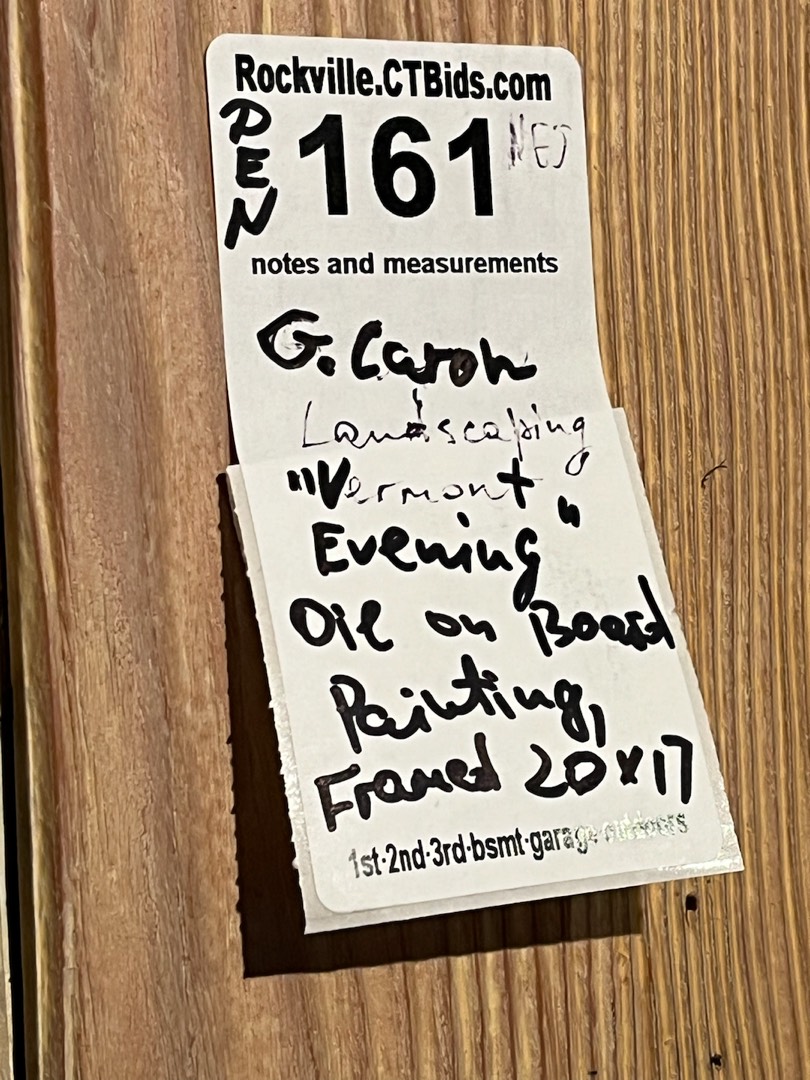 Rockville.CTBids.com
DEN
161
notes and measurements
G. Caron
Landscaping
"Vermont
Evening"
Oil on Board
Painting,
Framed 20x17
1st·2nd·3rd·bsmt·garage·outdoors